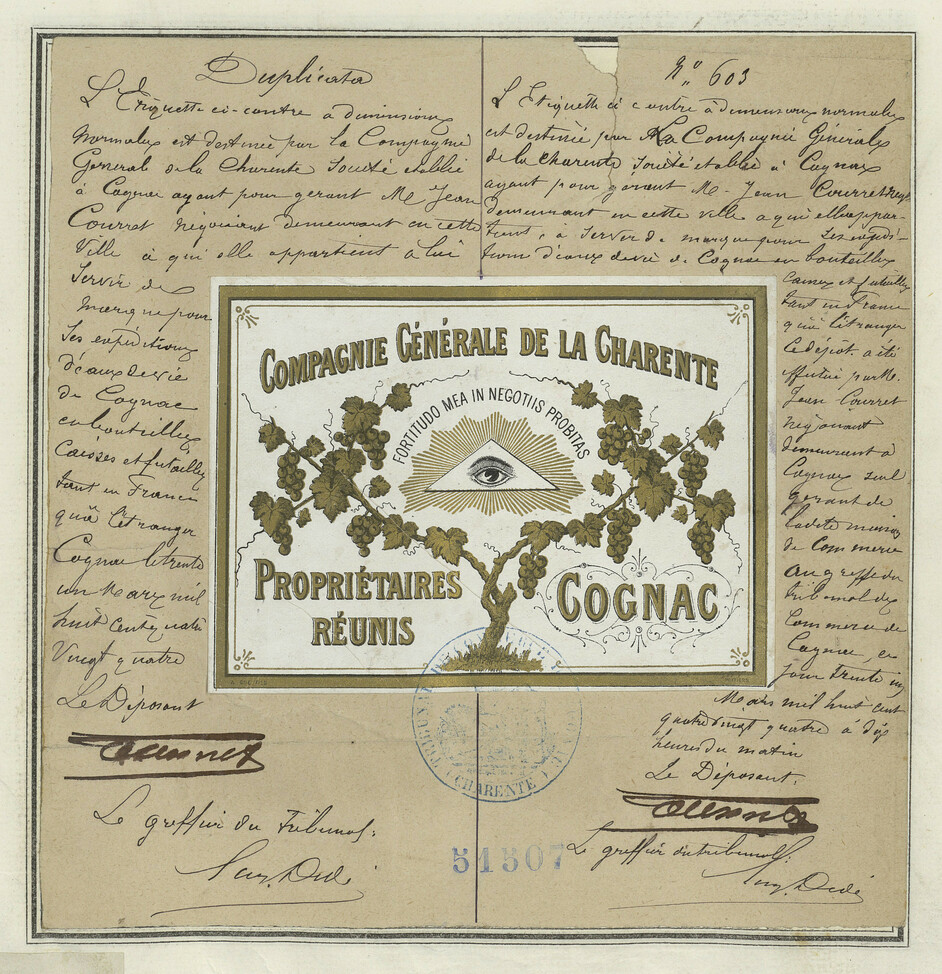 Duplicata
L'Etiquette ci-contre à dimensions
Normales est destinée par la Compagnie
General de la Charente Société établie
à Cognac ayant pour gerant Mr Jean
Courret Négociant demeurant en cette
Ville à qui elle appartient à lui
Servir de
marque pour
Ses expéditions
d'eaux de vie
de Cognac
en bouteilles
Caisses et futailles
tant en France
qu'à l'étranger
Cognac le trente
un Mars mil
huit cent quatre
Vingt quatre
Le Déposant
Courret
Le greffier du Tribunal:
No 603
L'Etiquette ci contre à dimensions normales
est destinée par La Compagnie Générale
de la Charente Société établie à Cognac
ayant pour gerant M. Jean Courret
demeurant en cette ville a qui elle appar-
tient, à Servir de marque pour Ses expédi-
tions d'eaux de vie de Cognac en bouteilles
Caisses et futailles
tant en France
qu'à l'étranger
Le dépôt a été
effectué par M.
Jean Courret
Négociant
demeurant à
Cognac seul
gerant de
ladite maison
de Commerce
au greffe du
tribunal de
Commerce de
Cognac, ce
jour trente un
Mars mil huit cent
quatre vingt quatre à dix
heures du matin
Le Déposant.
Courret
Le greffier du tribunal:
COMPAGNIE GÉNÉRALE DE LA CHARENTE
FORTITUDO MEA IN NEGOTIIS PROBITAS
PROPRIÉTAIRES
RÉUNIS
COGNAC
CHARENTE
51507